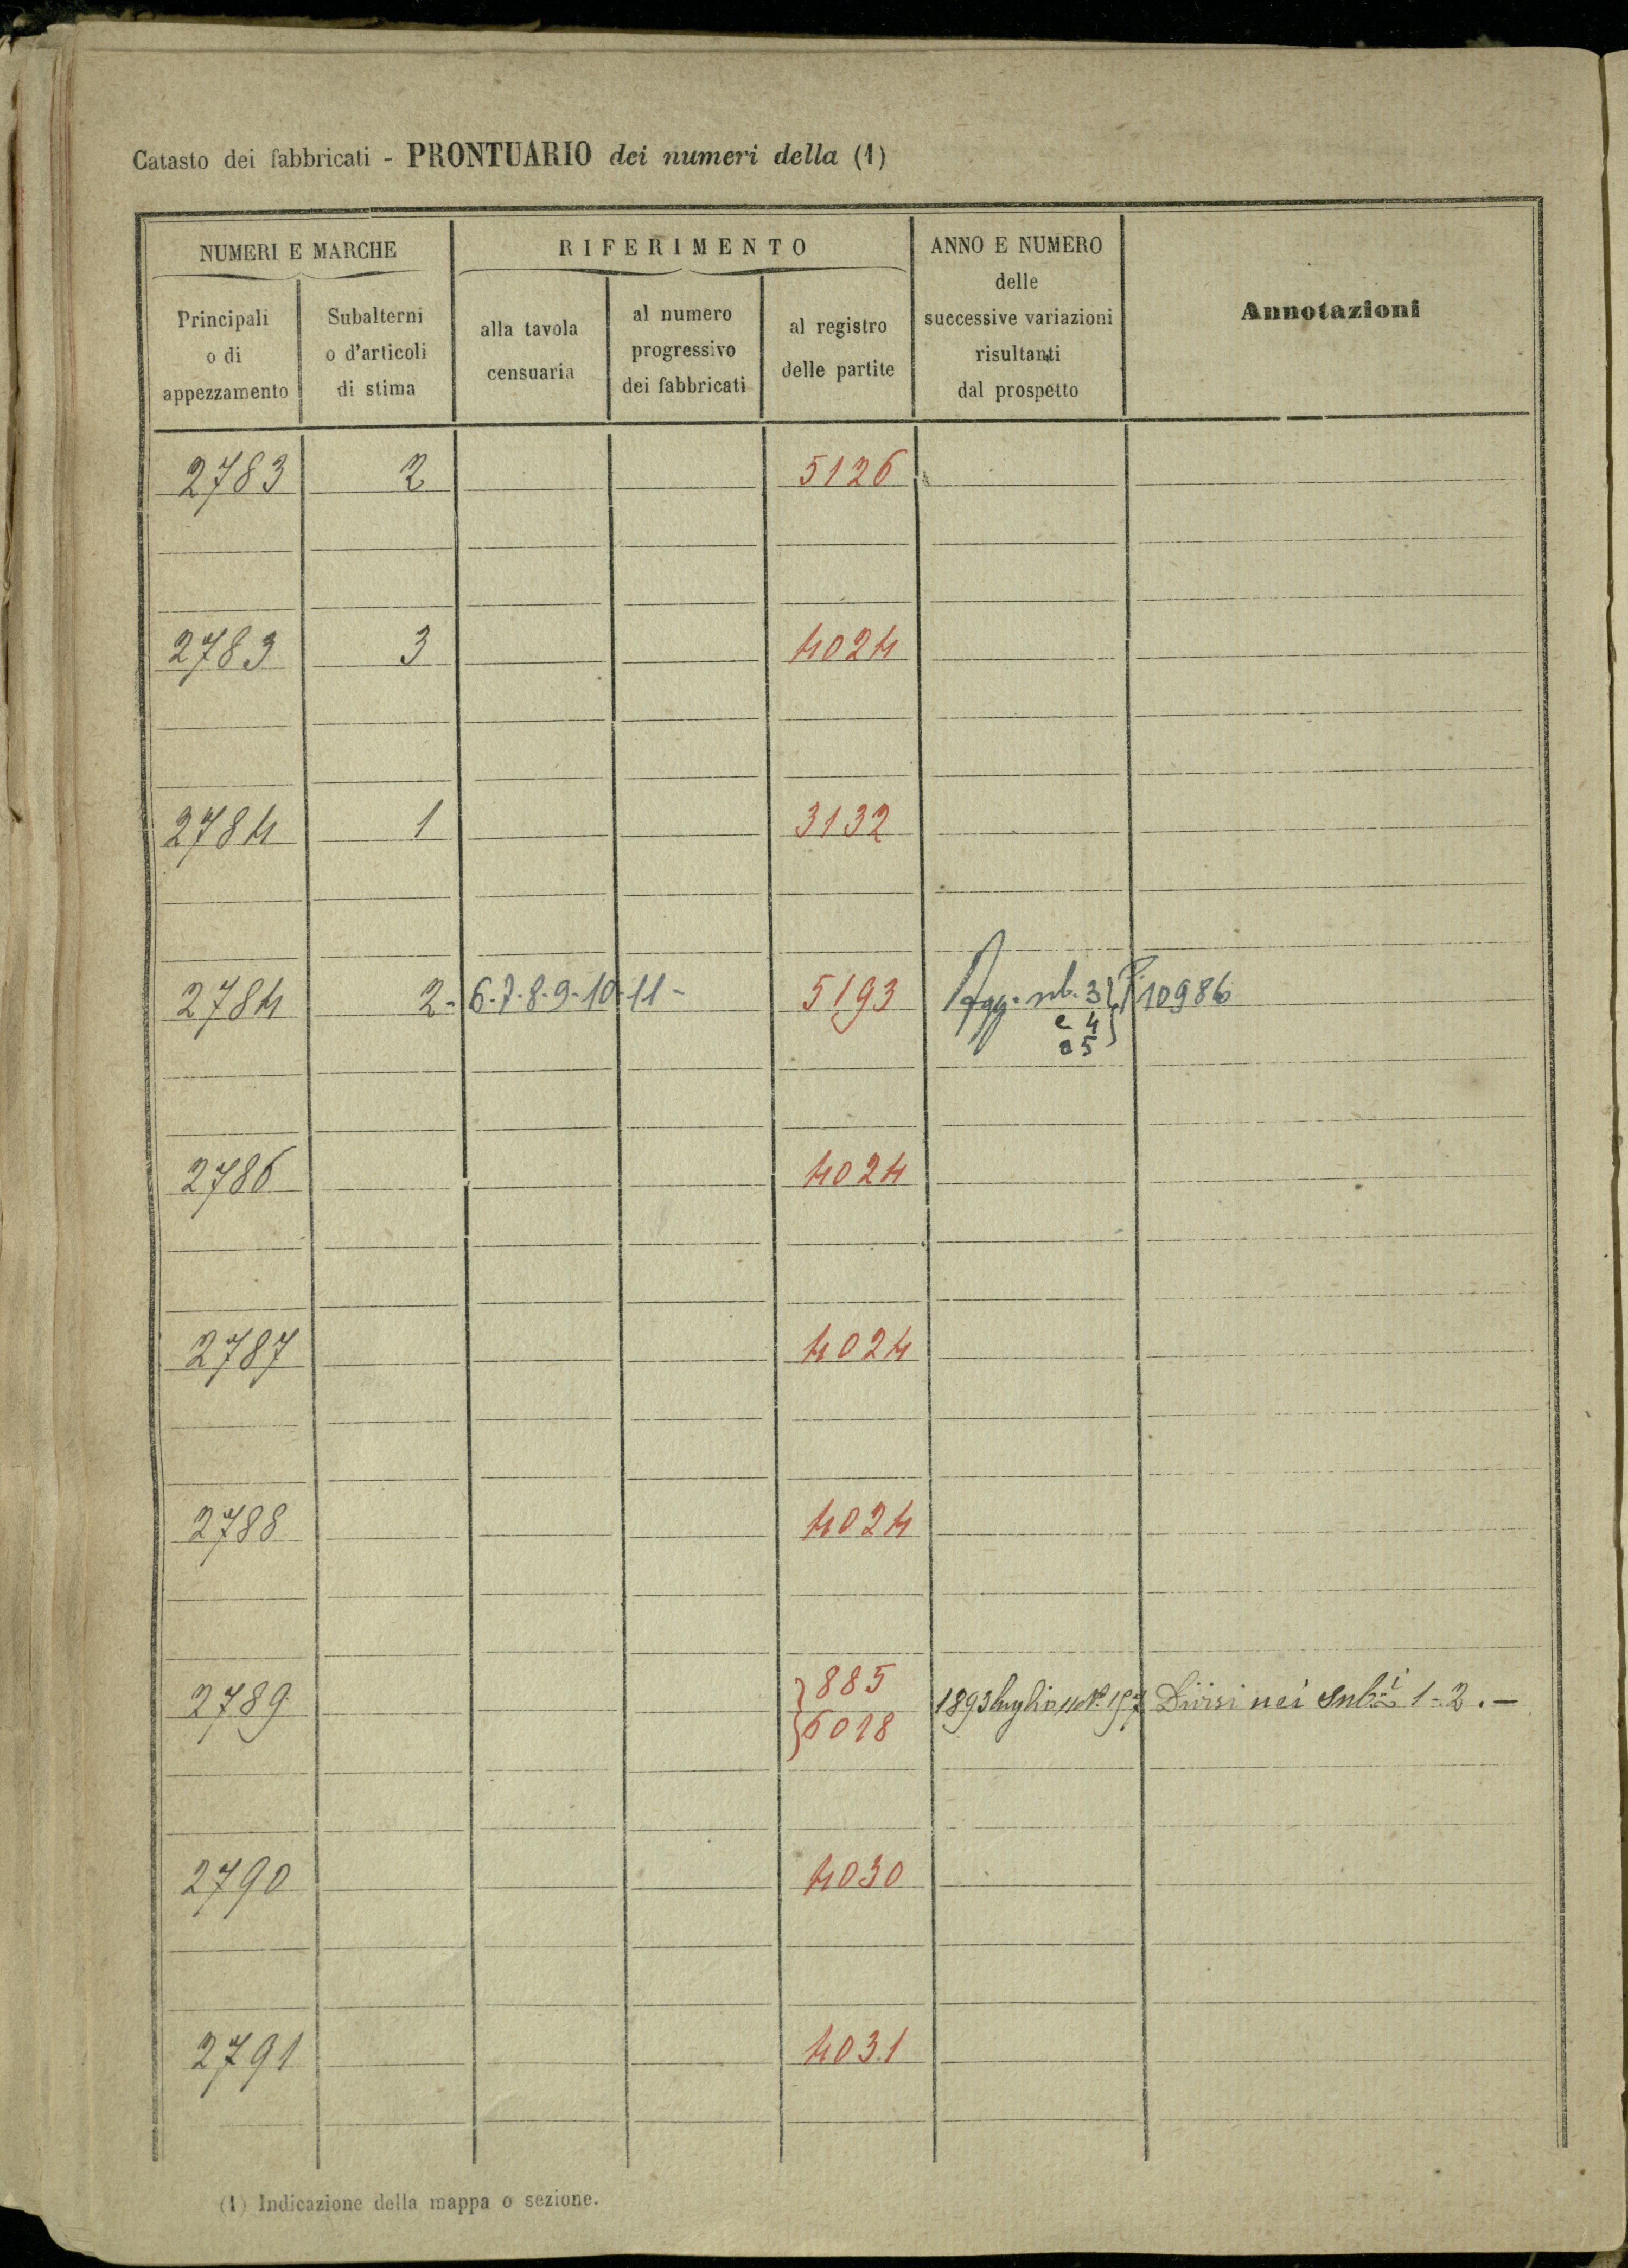 Catasto dei fabbricati - PRONTUARIO dei numeri della (1)
NUMERI E MARCHE
RIFERIMENTO
ANNO E NUMERO
delle
successive variazioni
risultanti
dal prospetto
Annotazioni
Principali
o di
appezzamento
Subalterni
o d'articoli
di stima
alla tavola
censuaria
al numero
progressivo
dei fabbricati
al registro
delle partite
2783 2 5126
2783 3 4024
2784 1 3132
2784 2-6-7-8-9-10-11- 5193 Agg. sub. 3 P. 10986
e 4
a 5
2786 4024
2787 4024
2788 4024
2789 885 1893 luglio 11 N.º 197 Divisi nei Sub.ⁱ 1-2.-
6018
2790 4030
2791 4031
(1) Indicazione della mappa o sezione.